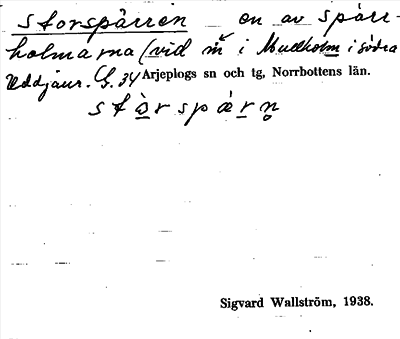 storspärren en av spärr-
holmarna (vid m i Mudholm i södra
Uddjaur. G. 34 Arjeplogs sn och tg, Norrbottens län.
stòrspǽrn̥
Sigvard Wallström, 1938.